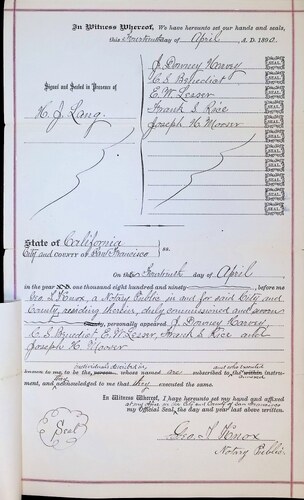 In Witness Whereof, We have hereunto set our hands and seals,
this Fourteenth day of April A.D. 1890.
Signed and Sealed in Presence of
H. J. Lang
J. Downey Harvey SEAL
C. S. Benedict SEAL
E. W. Lesser SEAL
Frank S. Rice SEAL
Joseph H. Morser SEAL
SEAL
SEAL
SEAL
SEAL
SEAL
SEAL
State of California
City and County of San Francisco } ss.
On this Fourteenth day of April
in the year one thousand eight hundred and ninety before me
Geo. T. Knox, a Notary Public in and for said City and
County, residing therein, duly commissioned and sworn
personally appeared J. Downey Harvey,
C. S. Benedict, E. W. Lesser, Frank S. Rice and
Joseph H. Morser
individuals described in and who executed
known to me to be the person whose names are subscribed to the within instrument
and acknowledged to me that they executed the same.
In Witness Whereof, I have hereunto set my hand and affixed
my Official Seal, at my office in the City and County of San Francisco
the day and year last above written.
Seal
Geo. T. Knox
Notary Public.